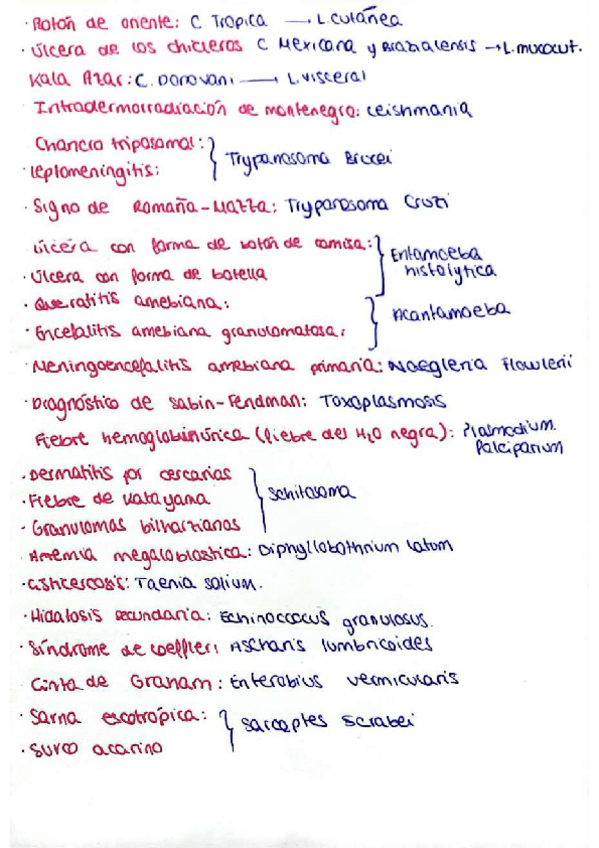 · Botón de oriente: C. Tropica → L. cutánea
· Úlcera de los chicleros C Mexicana y Brazialensis → L. mucocut.
Kala Azar: C. Donovani → L. visceral
Intradermorradiación de montenegro: Leishmania
Chancro triposomal:
· leptomeningitis: } Trypanosoma Brucei
· Signo de Romaña-Mazza: Trypanosoma Cruzi
úlcera con forma de botón de camisa:
· úlcera con forma de botella } Entamoeba histolytica
· Queratitis amebiana:
· Encefalitis amebiana granulomatosa: } Acantamoeba
· Meningoencefalitis amebiana primaria: Naegleria Flowlerii
· Diagnóstico de Sabin-Fendman: Toxoplasmosis
Fiebre hemoglobinúrica (fiebre del H₂O negra): Plasmodium. Palciparium
· Dermatitis por cercarias
· Fiebre de Katayama } Schitosoma
· Granulomas bilharzianos
Anemia megaloblástica: Diphyllobothrium latum
· Cistercosis: Taenia solium.
· Hidatosis secundaria: Echinococcus granulosus.
· Síndrome de Loeffler: Ascharis lumbricoides
Cinta de Graham: Enterobius vermicularis
· Sarna escotrópica:
· Surco acarino } Sarcoptes Scrabei